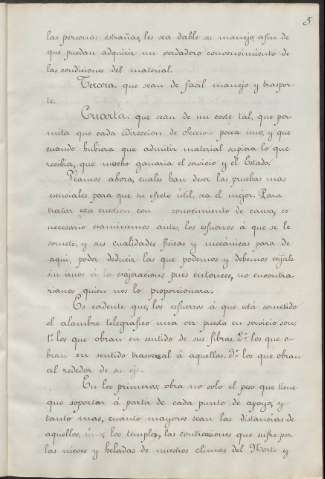 5
las personas estrañas, les sea dable su manejo, afin de
que puedan adquirir un verdadero convencimiento de
las condiciones del material.
Tercera, que sean de facil manejo y traspor-
te.
Cuarta, que sean de un coste tal, que per-
mita que cada direccion de observe posea uno, y que
cuando hubiera que admitir material supiera lo que
recibia, que mucho ganaria el servicio y el Estado.
Veamos ahora, cuales han de ser las pruebas mas
esenciales para que su efecto util, sea el mejor. Para
tratar esta cuestion con conocimiento de causa, es
necesario examinemos antes, los esfuerzos á que se le
somete, y sus cualidades fisicas y mecánicas para de
aqui, poder deducir las que podemos y debemos exijirle
sin caer á la exajeracion pues entonces, no encontra-
riamos quien nos lo proporcionara.
Es evidente que, los esfuerzos á que está sometido
el alambre telegrafico una vez puesto en servicio son:
1º los que obran en sentido de sus fibras 2º los que o-
bran en sentido trasversal á aquellas. 3º los que obran
al rededor de su eje.
En los primeros, obra no solo el peso que tiene
que soportar á partir de cada punto de apoyo, y
tanto mas, cuanto mayores sean las distancias de
aquellos, los temples, las contracciones que sufre por
las nieves y heladas de nuestros climas del Norte y